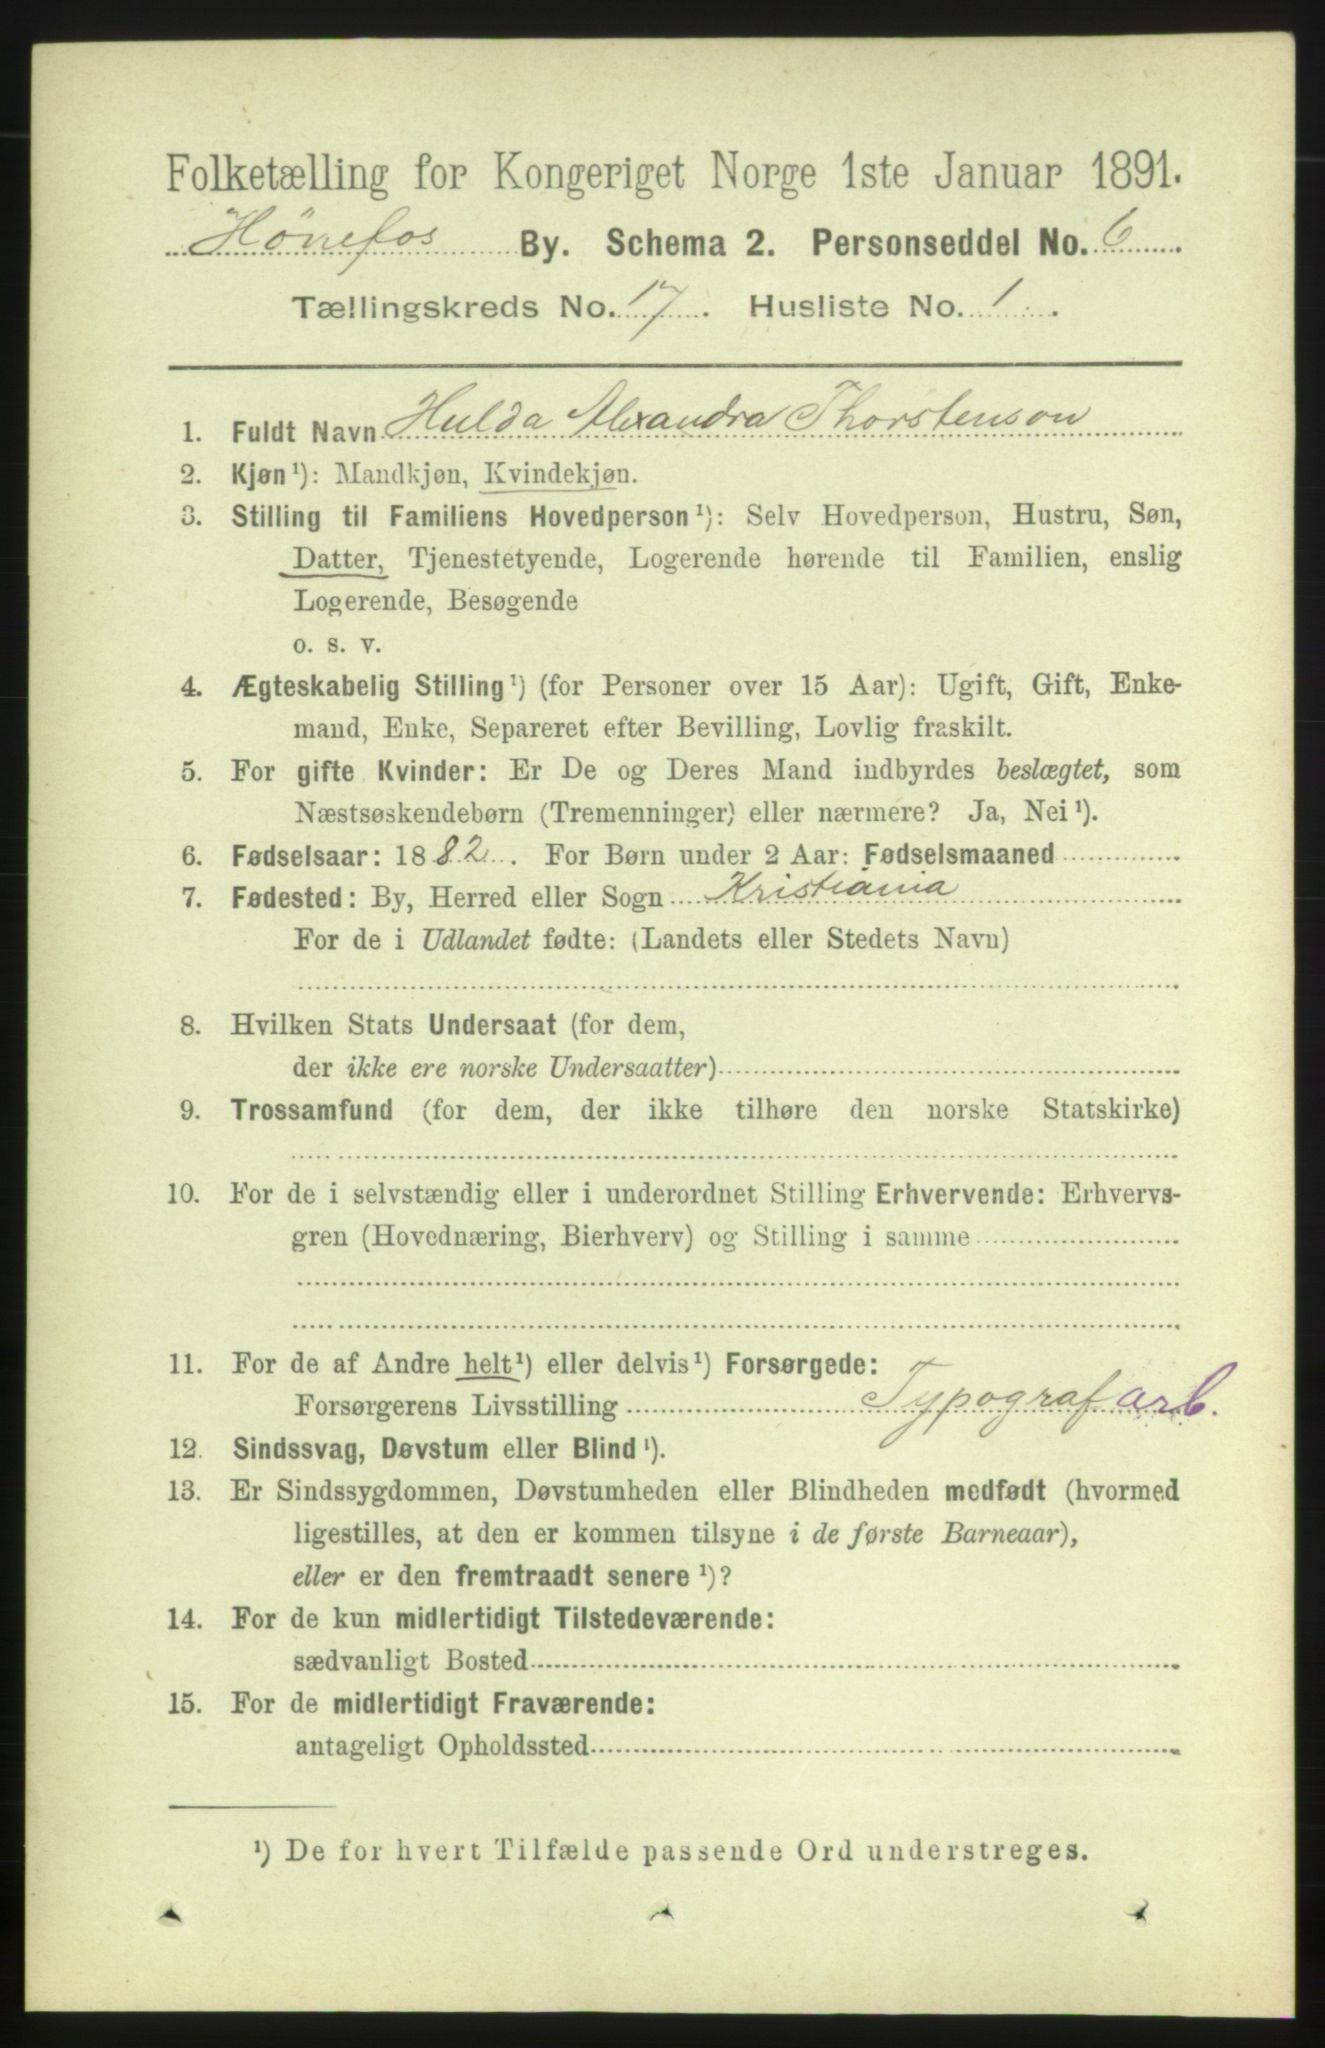 Folketælling for Kongeriget Norge 1ste Januar 1891.
Hönefos By. Schema 2. Personseddel No. 6
Tællingskreds No. 17. Husliste No. 1.
1. Fuldt Navn Hulda Alexandra Thorstenson
2. Kjøn¹): Mandkjøn, Kvindekjøn.
3. Stilling til Familiens Hovedperson¹): Selv Hovedperson, Hustru, Søn,
Datter, Tjenestetyende, Logerende hørende til Familien, enslig
Logerende, Besøgende
o. s. v.
4. Ægteskabelig Stilling¹) (for Personer over 15 Aar): Ugift, Gift, Enke-
mand, Enke, Separeret efter Bevilling, Lovlig fraskilt.
5. For gifte Kvinder: Er De og Deres Mand indbyrdes beslægtet, som
Næstsøskendebørn (Tremenninger) eller nærmere? Ja, Nei¹).
6. Fødselsaar: 1882. For Børn under 2 Aar: Fødselsmaaned
7. Fødested: By, Herred eller Sogn Kristiania
For de i Udlandet fødte: (Landets eller Stedets Navn)
8. Hvilken Stats Undersaat (for dem,
der ikke ere norske Undersaatter)
9. Trossamfund (for dem, der ikke tilhøre den norske Statskirke)
10. For de i selvstændig eller i underordnet Stilling Erhvervende: Erhvervs-
gren (Hovednæring, Bierhverv) og Stilling i samme
11. For de af Andre helt¹) eller delvis¹) Forsørgede:
Forsørgerens Livsstilling Typografarb.
12. Sindssvag, Døvstum eller Blind¹).
13. Er Sindssygdommen, Døvstumheden eller Blindheden medfødt (hvormed
ligestilles, at den er kommen tilsyne i de første Barneaar),
eller er den fremtraadt senere¹)?
14. For de kun midlertidigt Tilstedeværende:
sædvanligt Bosted
15. For de midlertidigt Fraværende:
antageligt Opholdssted
¹) De for hvert Tilfælde passende Ord understreges.